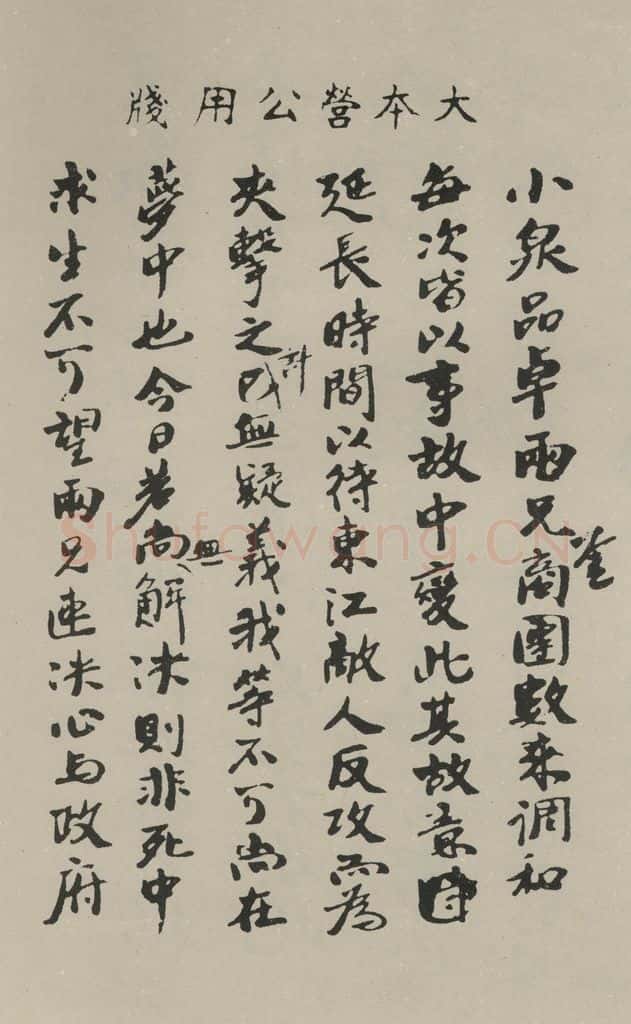 大本營公用牋
小泉品卓兩兄鑒商團數來調和
每次皆以事故中變此其故意
延長時間以待東江敵人反攻而為
夾擊之計無疑義我等不可尚在
夢中也今日若尚無解決則非死中
求生不可望兩兄速決心與政府
Shufawang.CN